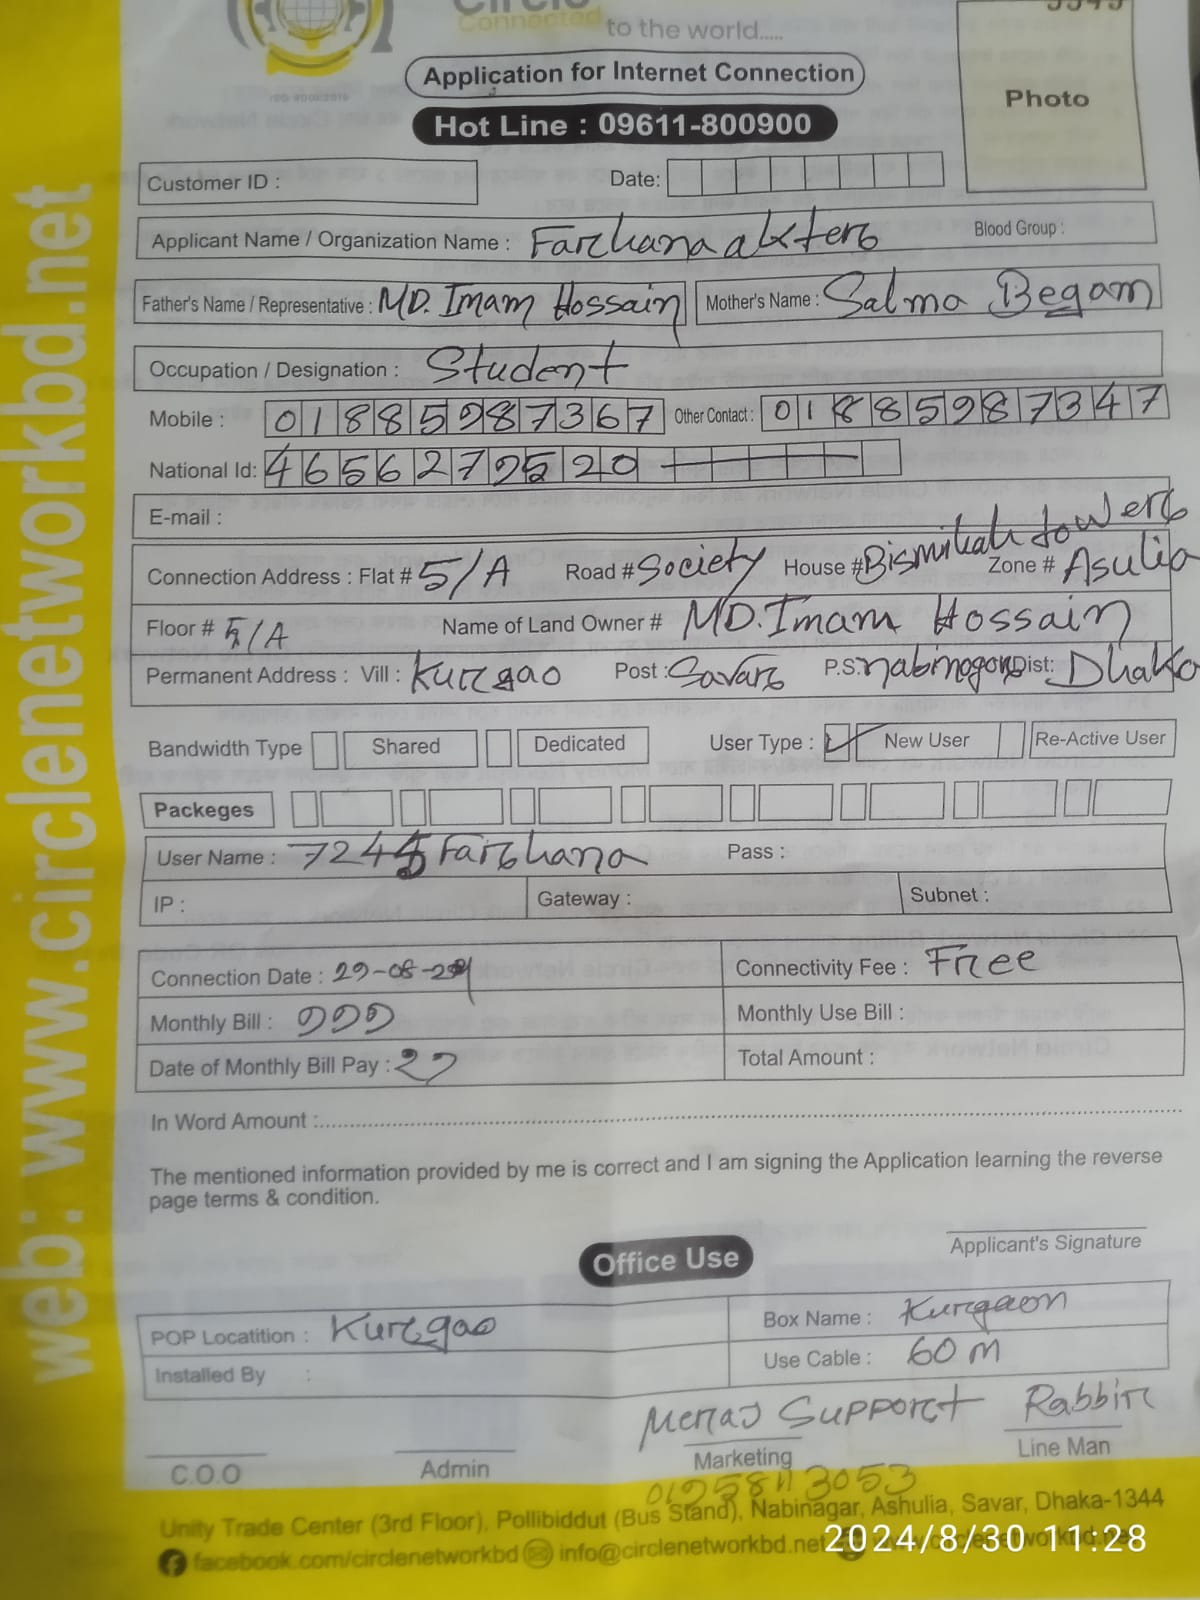 Circle
Connected to the world.....
5545
Application for Internet Connection
Photo
Hot Line : 09611-800900
Customer ID :
Date:
Applicant Name / Organization Name : Farhana akter
Blood Group :
Father's Name / Representative : MD. Imam Hossain
Mother's Name : Salma Begam
Occupation / Designation : Student
Mobile : 01885987367 Other Contact : 01885987347
National Id:
E-mail :
Connection Address : Flat # 5/A Road # Society House # Bismillah tower Zone # Asulia
Floor # 5/A Name of Land Owner # MD. Imam Hossain
Permanent Address : Vill : Kurgao Post : Savar P.S. nabinogor Dist: Dhaka
Bandwidth Type Shared Dedicated User Type : New User Re-Active User
Packeges
User Name : 7245 Farhana Pass :
IP : Gateway : Subnet :
Connection Date : 29-08-24 Connectivity Fee : Free
Monthly Bill : Monthly Use Bill :
Date of Monthly Bill Pay : Total Amount :
In Word Amount :
The mentioned information provided by me is correct and I am signing the Application learning the reverse
page terms & condition.
Applicant's Signature
Office Use
POP Locatition : Kurgao Box Name : Kurgaon
Installed By : Use Cable : 60 m
Meraj Support Rabbir
C.O.O Admin Marketing Line Man
Unity Trade Center (3rd Floor), Pollibiddut (Bus Stand), Nabinagar, Ashulia, Savar, Dhaka-1344
facebook.com/circlenetworkbd info@circlenetworkbd.net
2024/8/30 11:28
web: www.circlenetworkbd.net